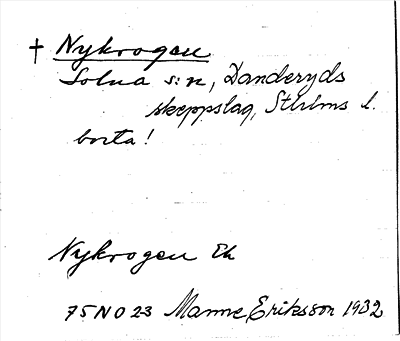 † Nykrogen
Solna s:n, Danderyds
skeppslag, Sthlms l.
borta!
Nykrogen Ek
75NO23 Manne Eriksson 1932